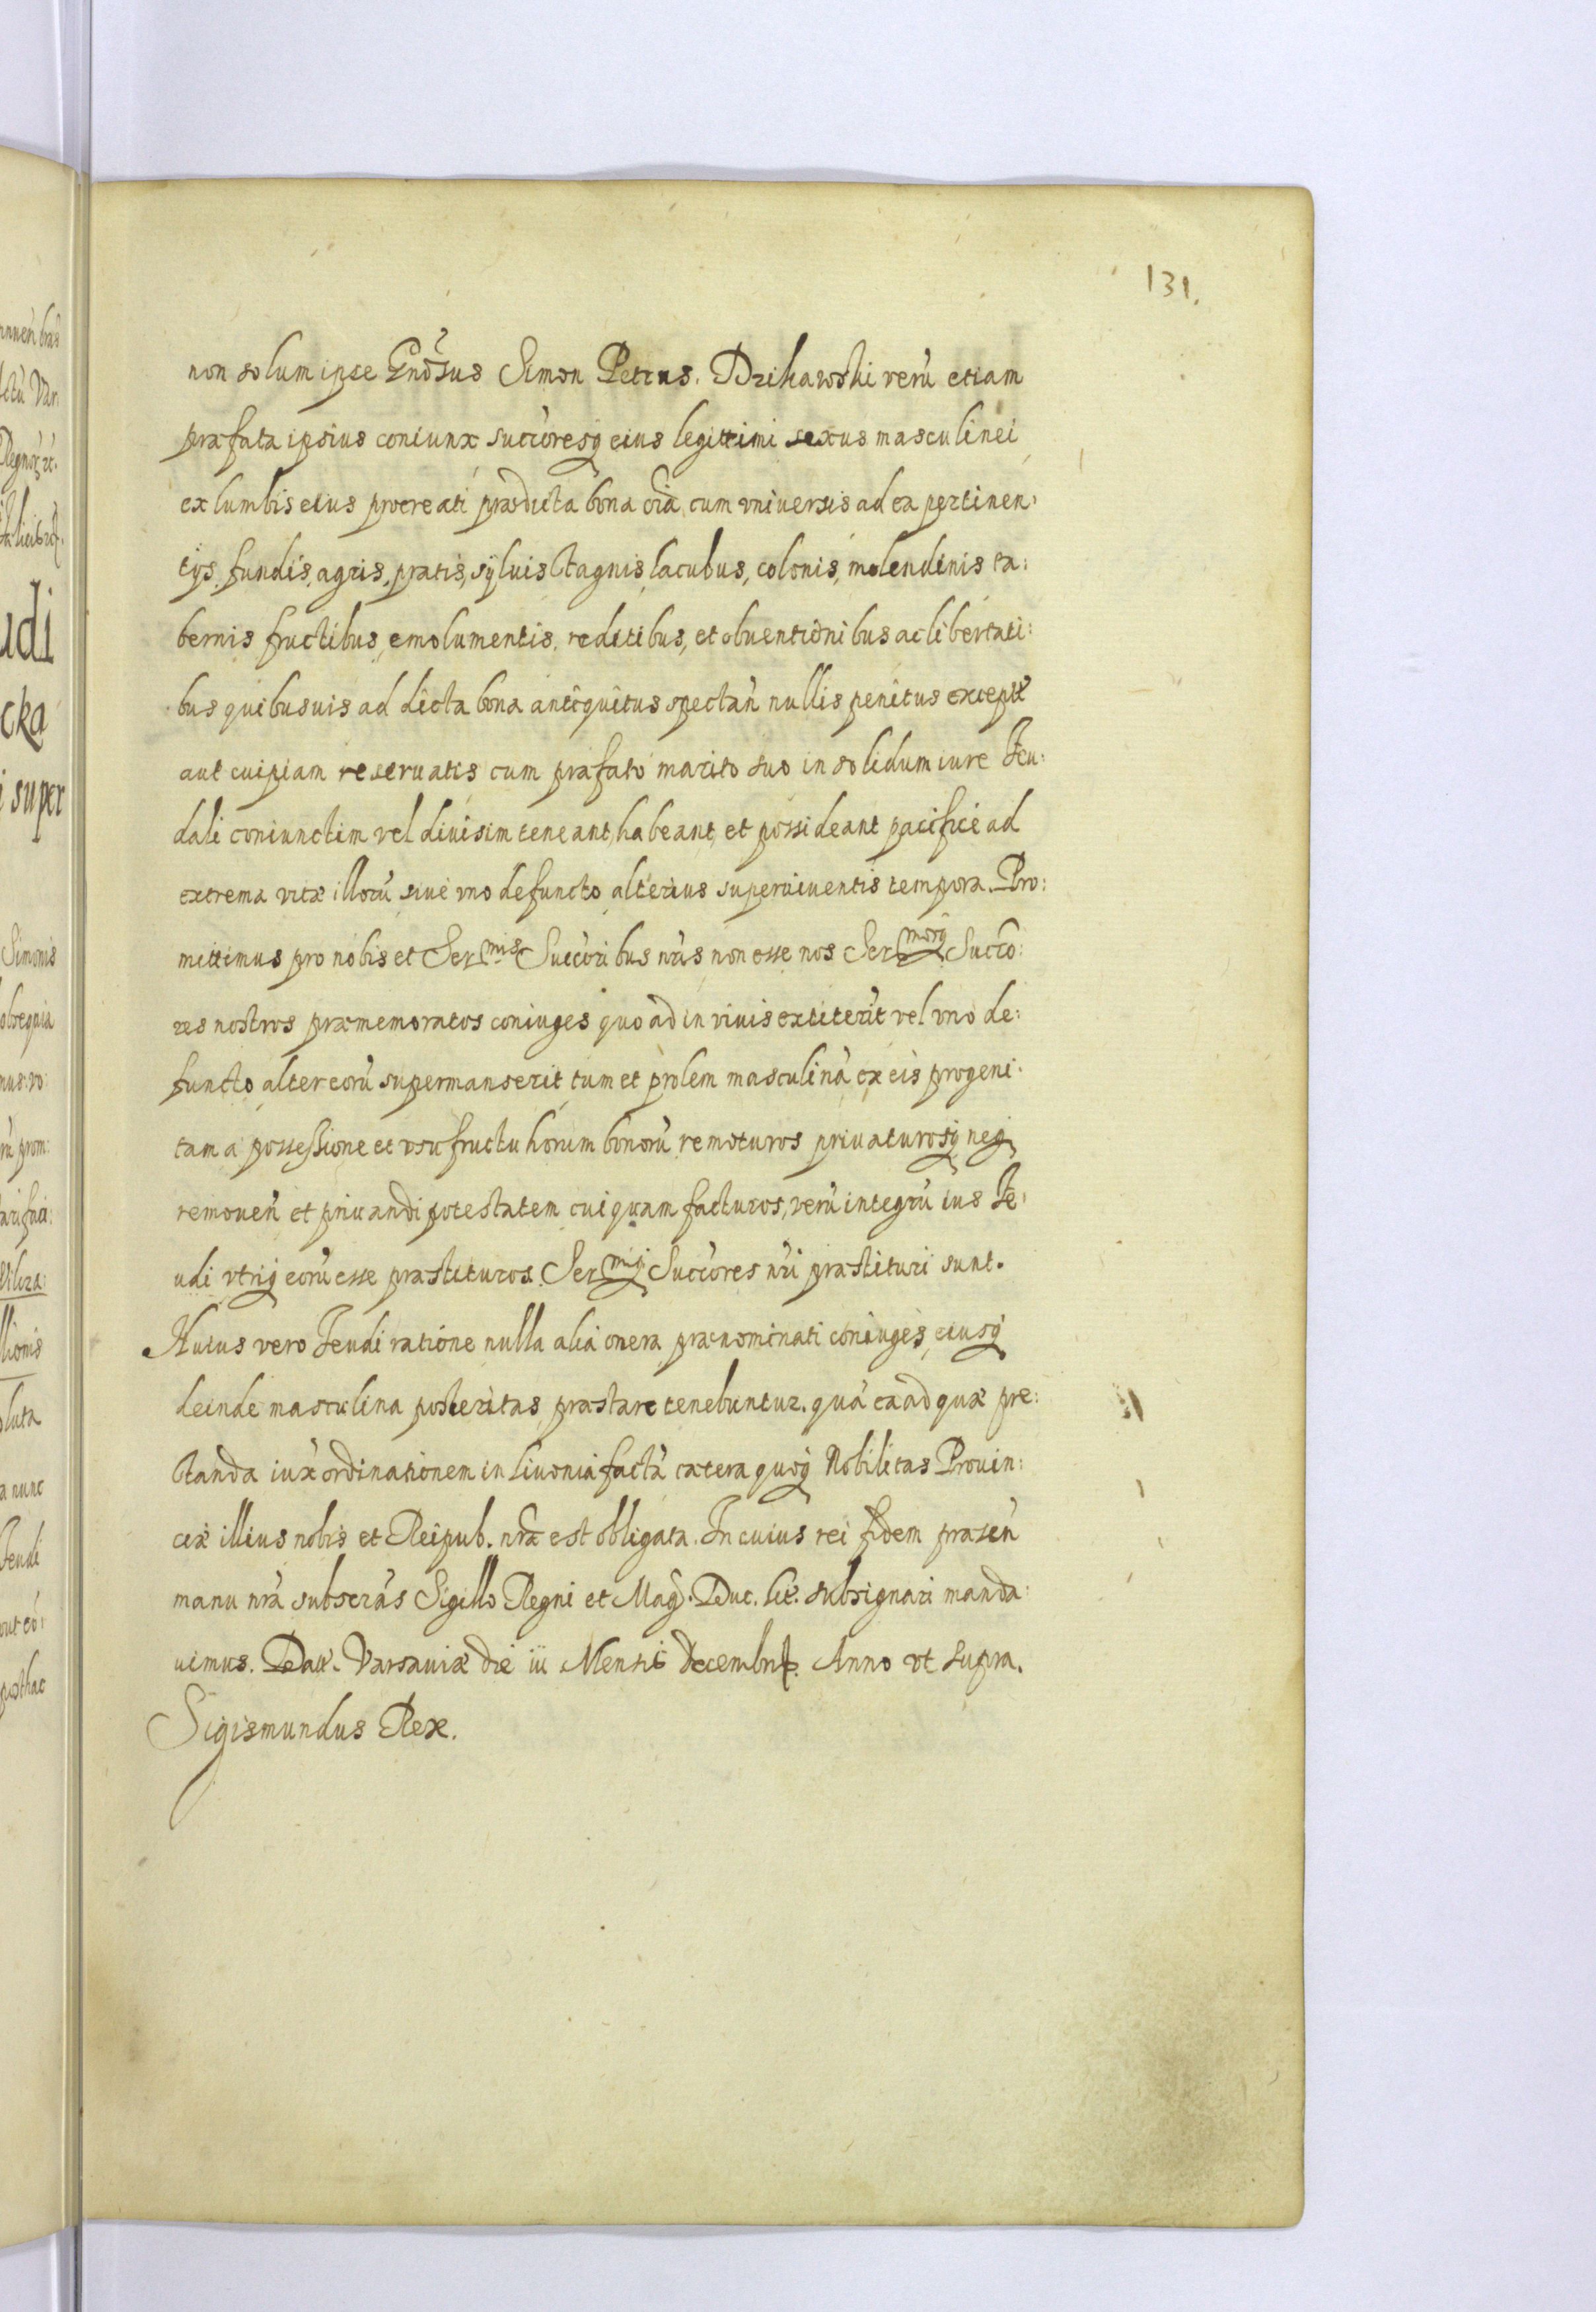 131.
non solum ipse Gnõsus Simon Petrus Dzikawski verũ etiam
præfata ipsius coniunx succoresq eius legittimi sexus masculinei
ex lumbis eius procreati prædicta bona oĩa cum vniversis ad ea pertinen:
tijs, fundis, agris, pratis, sÿluis stagnis, lacubus, colonis, molendinis ta:
bernis fructibus, emolumentis, reditibus, et obuentionibus ac libertati:
bus quibusuis ad dicta bona antiquitus spectañ nullis penitus except
aut cuipiam reseruatis cum præfato marito suo in solidum iure feu:
dali coniunctim vel diuisim teneant, habeant, et possideant pacificè ad
extrema vitæ illorũ siuè vno defuncto alterius superuiuentis tempora. Pro:
mittimus pro nobis et Sermis Succoribus nr̃is non esse nos Sermosq Succo:
res nostros præmemoratos coniuges quo ad in viuis extiterĩt vel vno de:
functo alter eorũ supermanserit tum et prolem masculinã ex eis progeni:
tam a possessione et vsufructu horum bonorũ remoturos priuaturosq neq
remoueñ et priuandi potestatem cuiquam facturos, verũ integrũ ius Fe:
udi vtriq eorũ esse præstituros. Sermiq Succores nr̃i præstituri sunt.
Huius vero Feudi ratione nulla alia onera prænominati coniuges, eiusq
deinde masculina posteritas præstare tenebuntur. quã ea ad quæ pre:
standa iux̃ ordinationem in Liuonia factã cætera quoq Nobilitas Prouin:
ciæ illius nobis et Reipub. nr̃æ est obligata. In cuius rei fidem præseñ
manu nr̃a subscrãs Sigillo Regni et Mag. Duc. Lit. subsignari manda:
uimus. Datt. Varsauiæ die iii Mensis Decembris. Anno vt supra.
Sigismundus Rex.